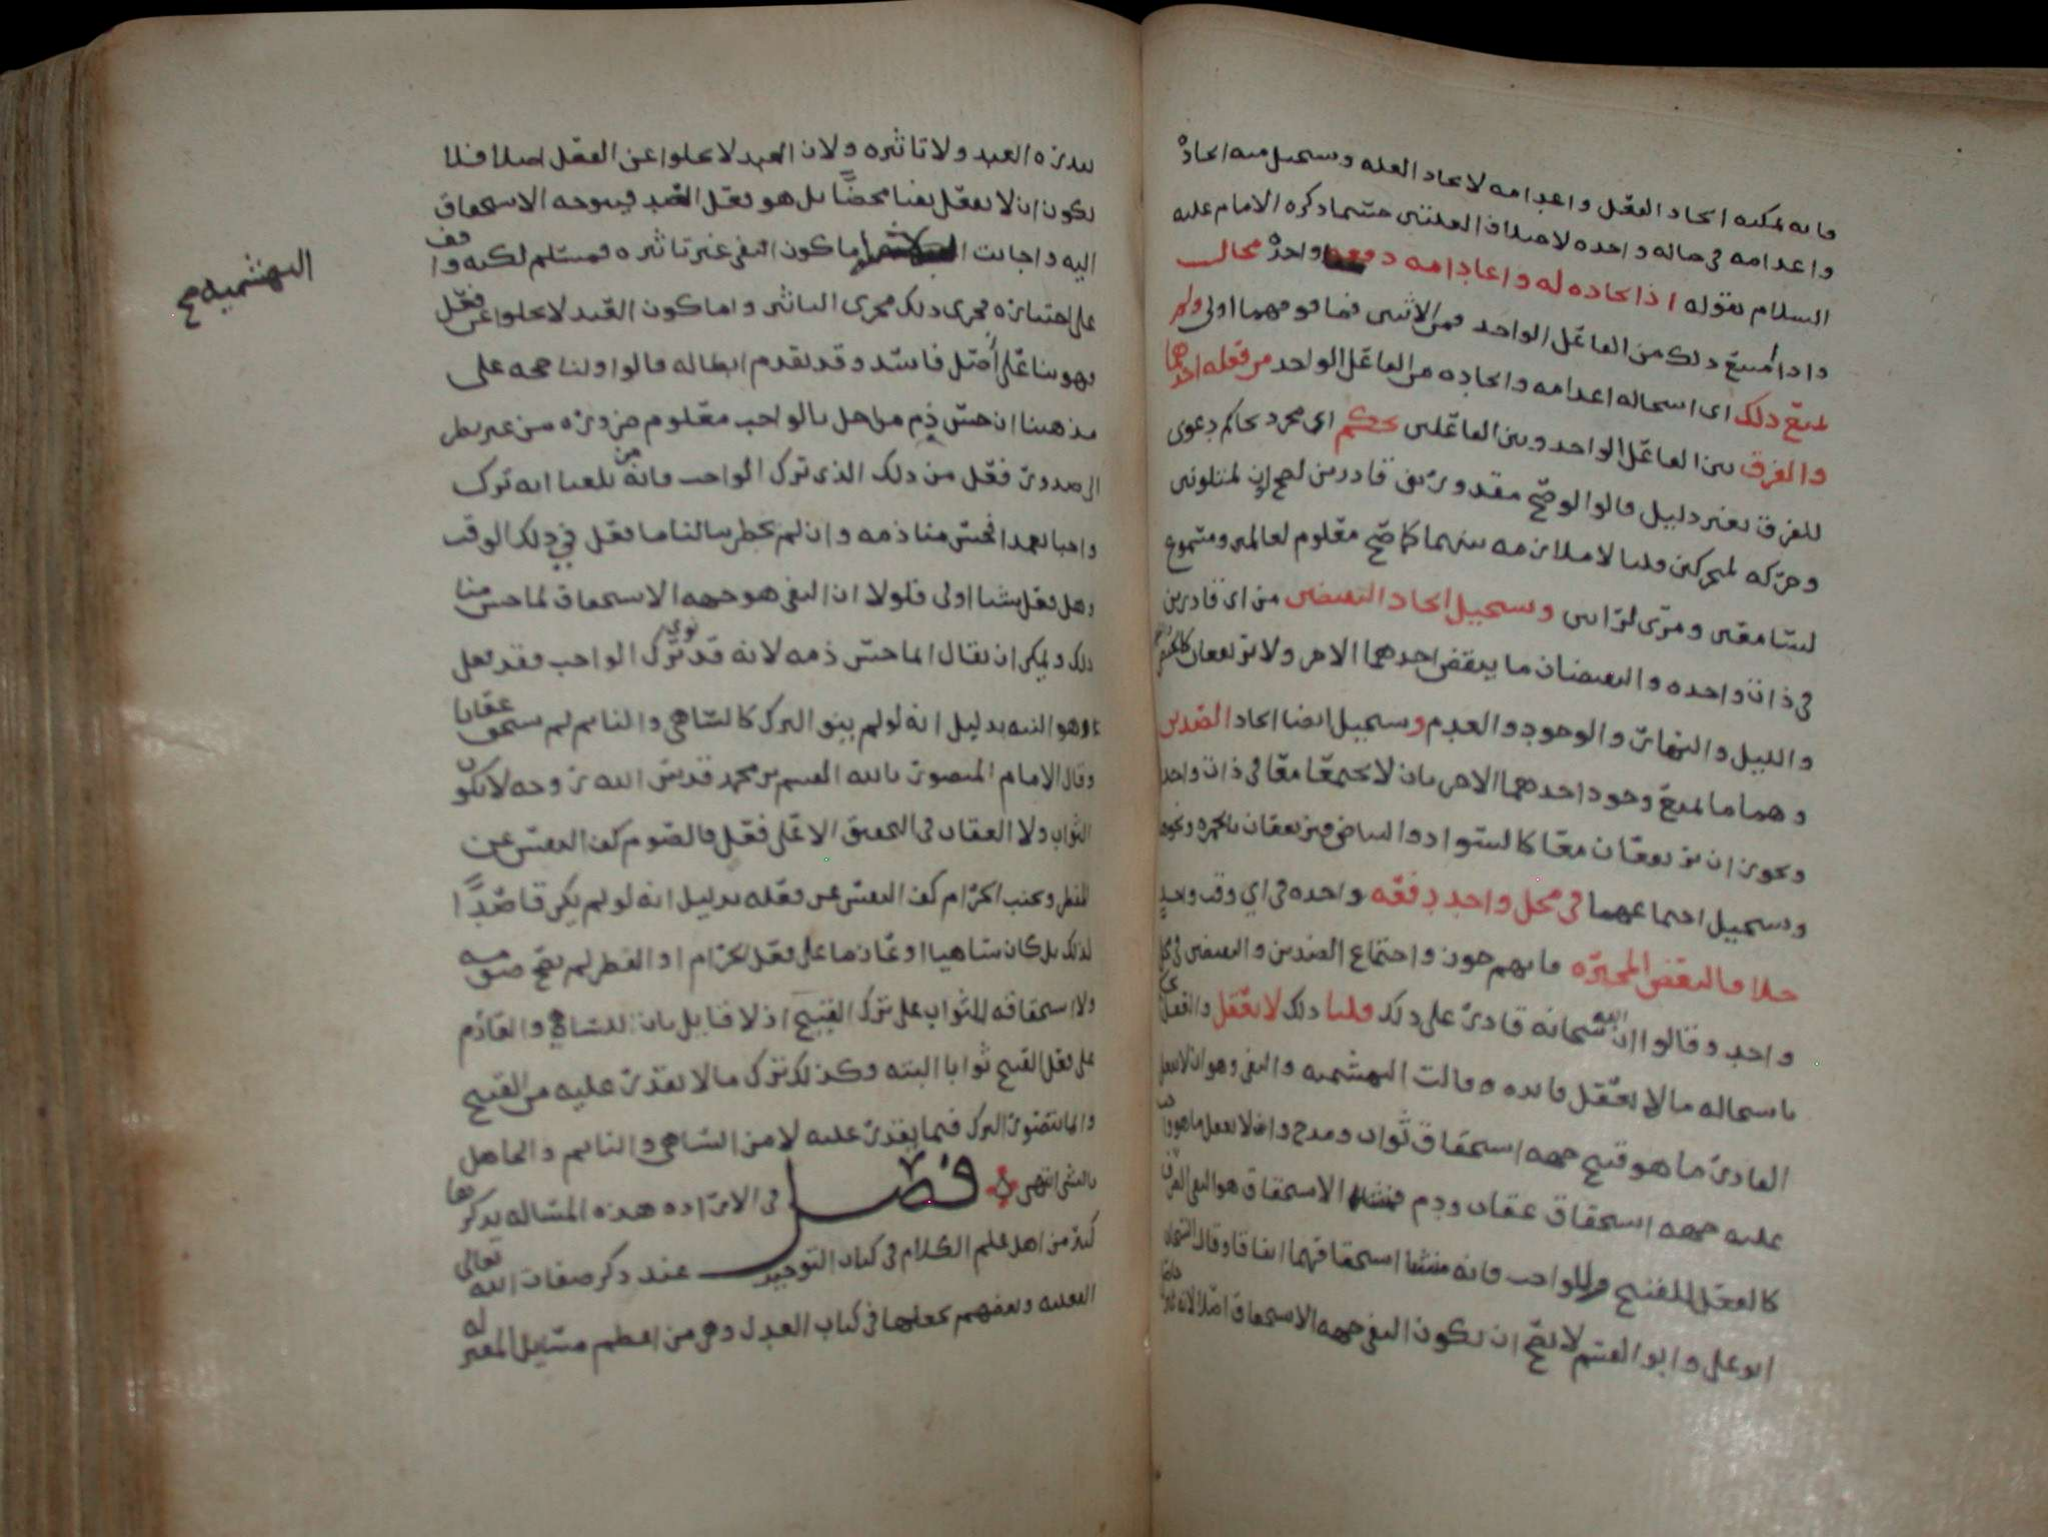 فانه يمكنه ايجاد الفعل واعدامه لاتحاد العله ويستحيل منه ايجاده
واعدامه في حاله واحده لاختلاف العلتين حسبما ذكره الامام عليه
السلام بقوله اذ ايجاده له واعدامه دفعه واحده محال
واذا امتنع ذلك من الفاعل الواحد فمن الاثنين فما فوقهما اولى ولم
يمتنع ذلك اي استحاله اعدامه وايجاده من الفاعل الواحد من فعله احدهما
والفرق بين الفاعل الواحد وبين الفاعلين تحكم اي مجرد تحاكم دعوى
للفرق بغير دليل قالوا لو صح مقدور بين قادرين لصح لون لمتلونين
وحركه لمتحركين قلنا لا ملازمه بينهما كما صح معلوم لعالمين ومسموع
لسامعين ومرئي لرائيين ويستحيل ايجاد النقيضين من اي قادرين
في ذات واحده والنقيضان ما ينقض احدهما الاخر ولا يرتفعان
والليل والنهار والوجود والعدم ويستحيل ايضا ايجاد الضدين
وهما ما يمنع وجود احدهما الاخر بان لا يجتمعا معا في ذات واحده
ويجوز ان يرتفعان معا كالسواد والبياض فيرتفعان بالحمره ونحوها
ويستحيل اجتماعهما في محل واحد دفعه واحده في اي وقت واحد
خلافا لبعض المجبره فانهم جوزوا اجتماع الضدين والنقيضين في محل
واحد وقالوا ان الله سبحانه قادر على ذلك قلنا ذلك لا يعقل
باستحاله ما لا يعقل فائده وقالت البهشميه والنفي وهو ان لا يفعل
القادر ما هو قبيح جهه استحقاق ثواب ومدح وان لا يفعل ما هو واجب
عليه جهه استحقاق عقاب وذم فمنشا الاستحقاق هو النفي
كالفعل للقبيح وللواجب فانه منشا استحقاقهما اتفاقا وقال الشيخان
ابو علي وابو القسم لا يصح ان يكون النفي جهه الاستحقاق اصلا لانه
بقدره العبد ولا تاثيره ولان العبد لا يخلوا عن الفعل اصلا فلا
يكون ان لا يفعل نفيا محضا بل هو فعل الضد فيتوجه الاستحقاق
اليه واجابت اما كون النفي غير تاثيره فمسلم لكنه واقف
على اختياره فجرى ذلك مجرى التاثير واما كون العبد لا يخلوا عن فعل
فهو بنا على اصل فاسد وقد تقدم ابطاله قالوا ولنا حجه على
مذهبنا ان حسن ذم من اخل بالواجب معلوم ضروره من غير نظر
الى صدور فعل من ذلك الذي ترك الواجب فانه من بلغنا انه ترك
واجبا عمدا فحسن منا ذمه وان لم يخطر ببالنا ما فعل في ذلك الوقت
وهل فعل شيئا اولى فلولا ان النفي هو جهه الاستحقاق لما حسن منا
ذلك ويمكن ان يقال انما حسن ذمه لانه قد نوى ترك الواجب فقد فعل
وهو النيه بدليل انه لو لم ينو الترك كالساهي والنائم لم يستحق عقابا
وقال الامام المنصور بالله القسم بن محمد قدس الله روحه لا يكون
الثواب ولا العقاب في التحقيق الا على فعل فالصوم كف النفس عن
المفطر وتجنب الحرام كف النفس عن فعله بدليل انه لو لم يكن قاصدا
لذلك بل كان ساهيا او عازما على فعل الحرام او الفطر لم يصح صومه
ولا استحقاقه للثواب على ترك القبيح اذ لا قايل بان للساهي والعازم
على فعل القبيح ثوابا البته وكذلك ترك ما لا يقدر عليه من القبيح
وانما يتصور الترك فيما يقدر عليه لا من الساهي والنائم والجاهل
بالشي انتهى فصل في الاراده هذه المساله يذكرها
كثير من اهل علم الكلام في كتاب التوحيد عند ذكر صفات الله تعالى
الفعليه وبعضهم يجعلها في كتاب العدل وهي من اعظم مسايل المعتزله
البهشميه صح